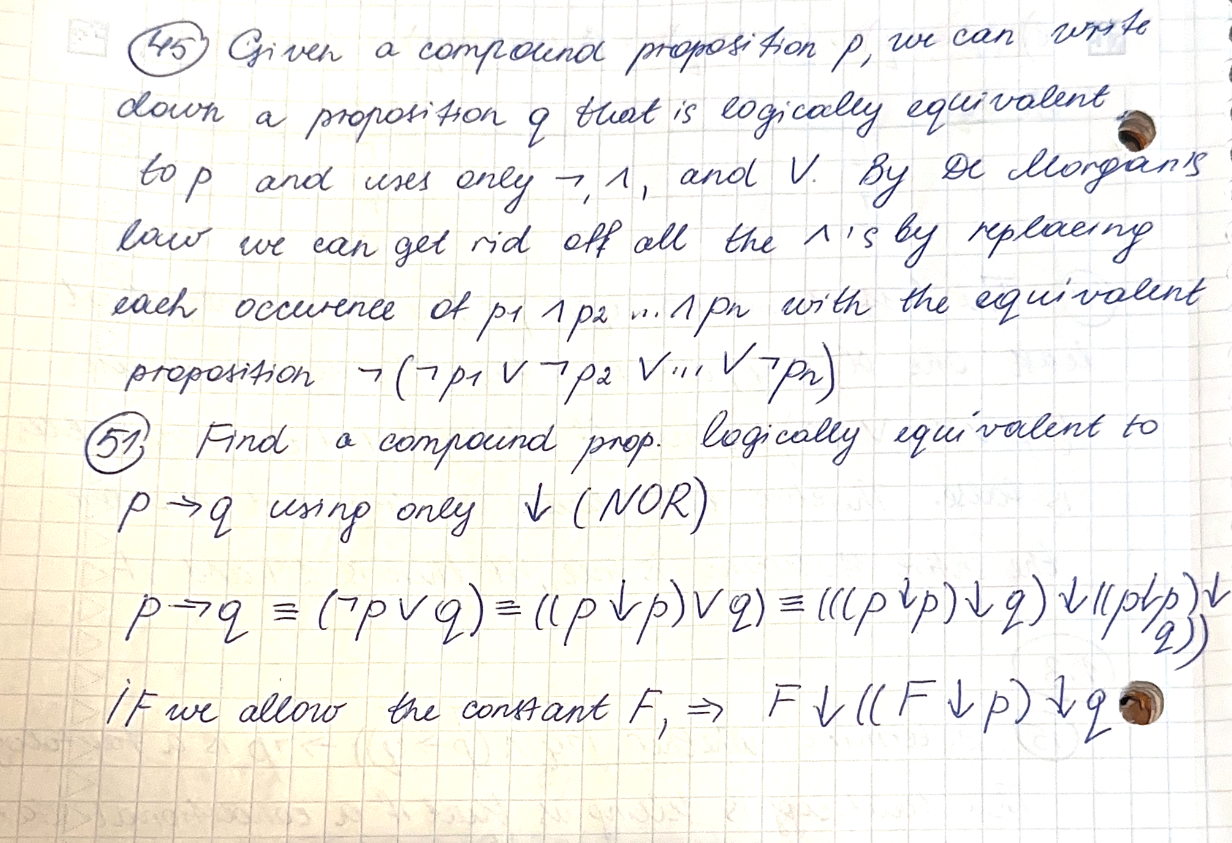 45 Given a compound proposition p, we can write
down a proposition q that is logically equivalent
to p and uses only ¬, ∧, and ∨. By De Morgan's
law we can get rid off all the ∧'s by replacing
each occurence of p1 ∧ p2 ... ∧ pn with the equivalent
proposition ¬(¬p1 ∨ ¬p2 ∨ ... ∨ ¬pn)
51 Find a compound prop. logically equivalent to
p → q using only ↓ (NOR)
p → q ≡ (¬p ∨ q) ≡ ((p ↓ p) ∨ q) ≡ (((p ↓ p) ↓ q) ↓ ((p ↓ p) ↓
q))
iF we allow the constant F, ⇒ F ↓ ((F ↓ p) ↓ q